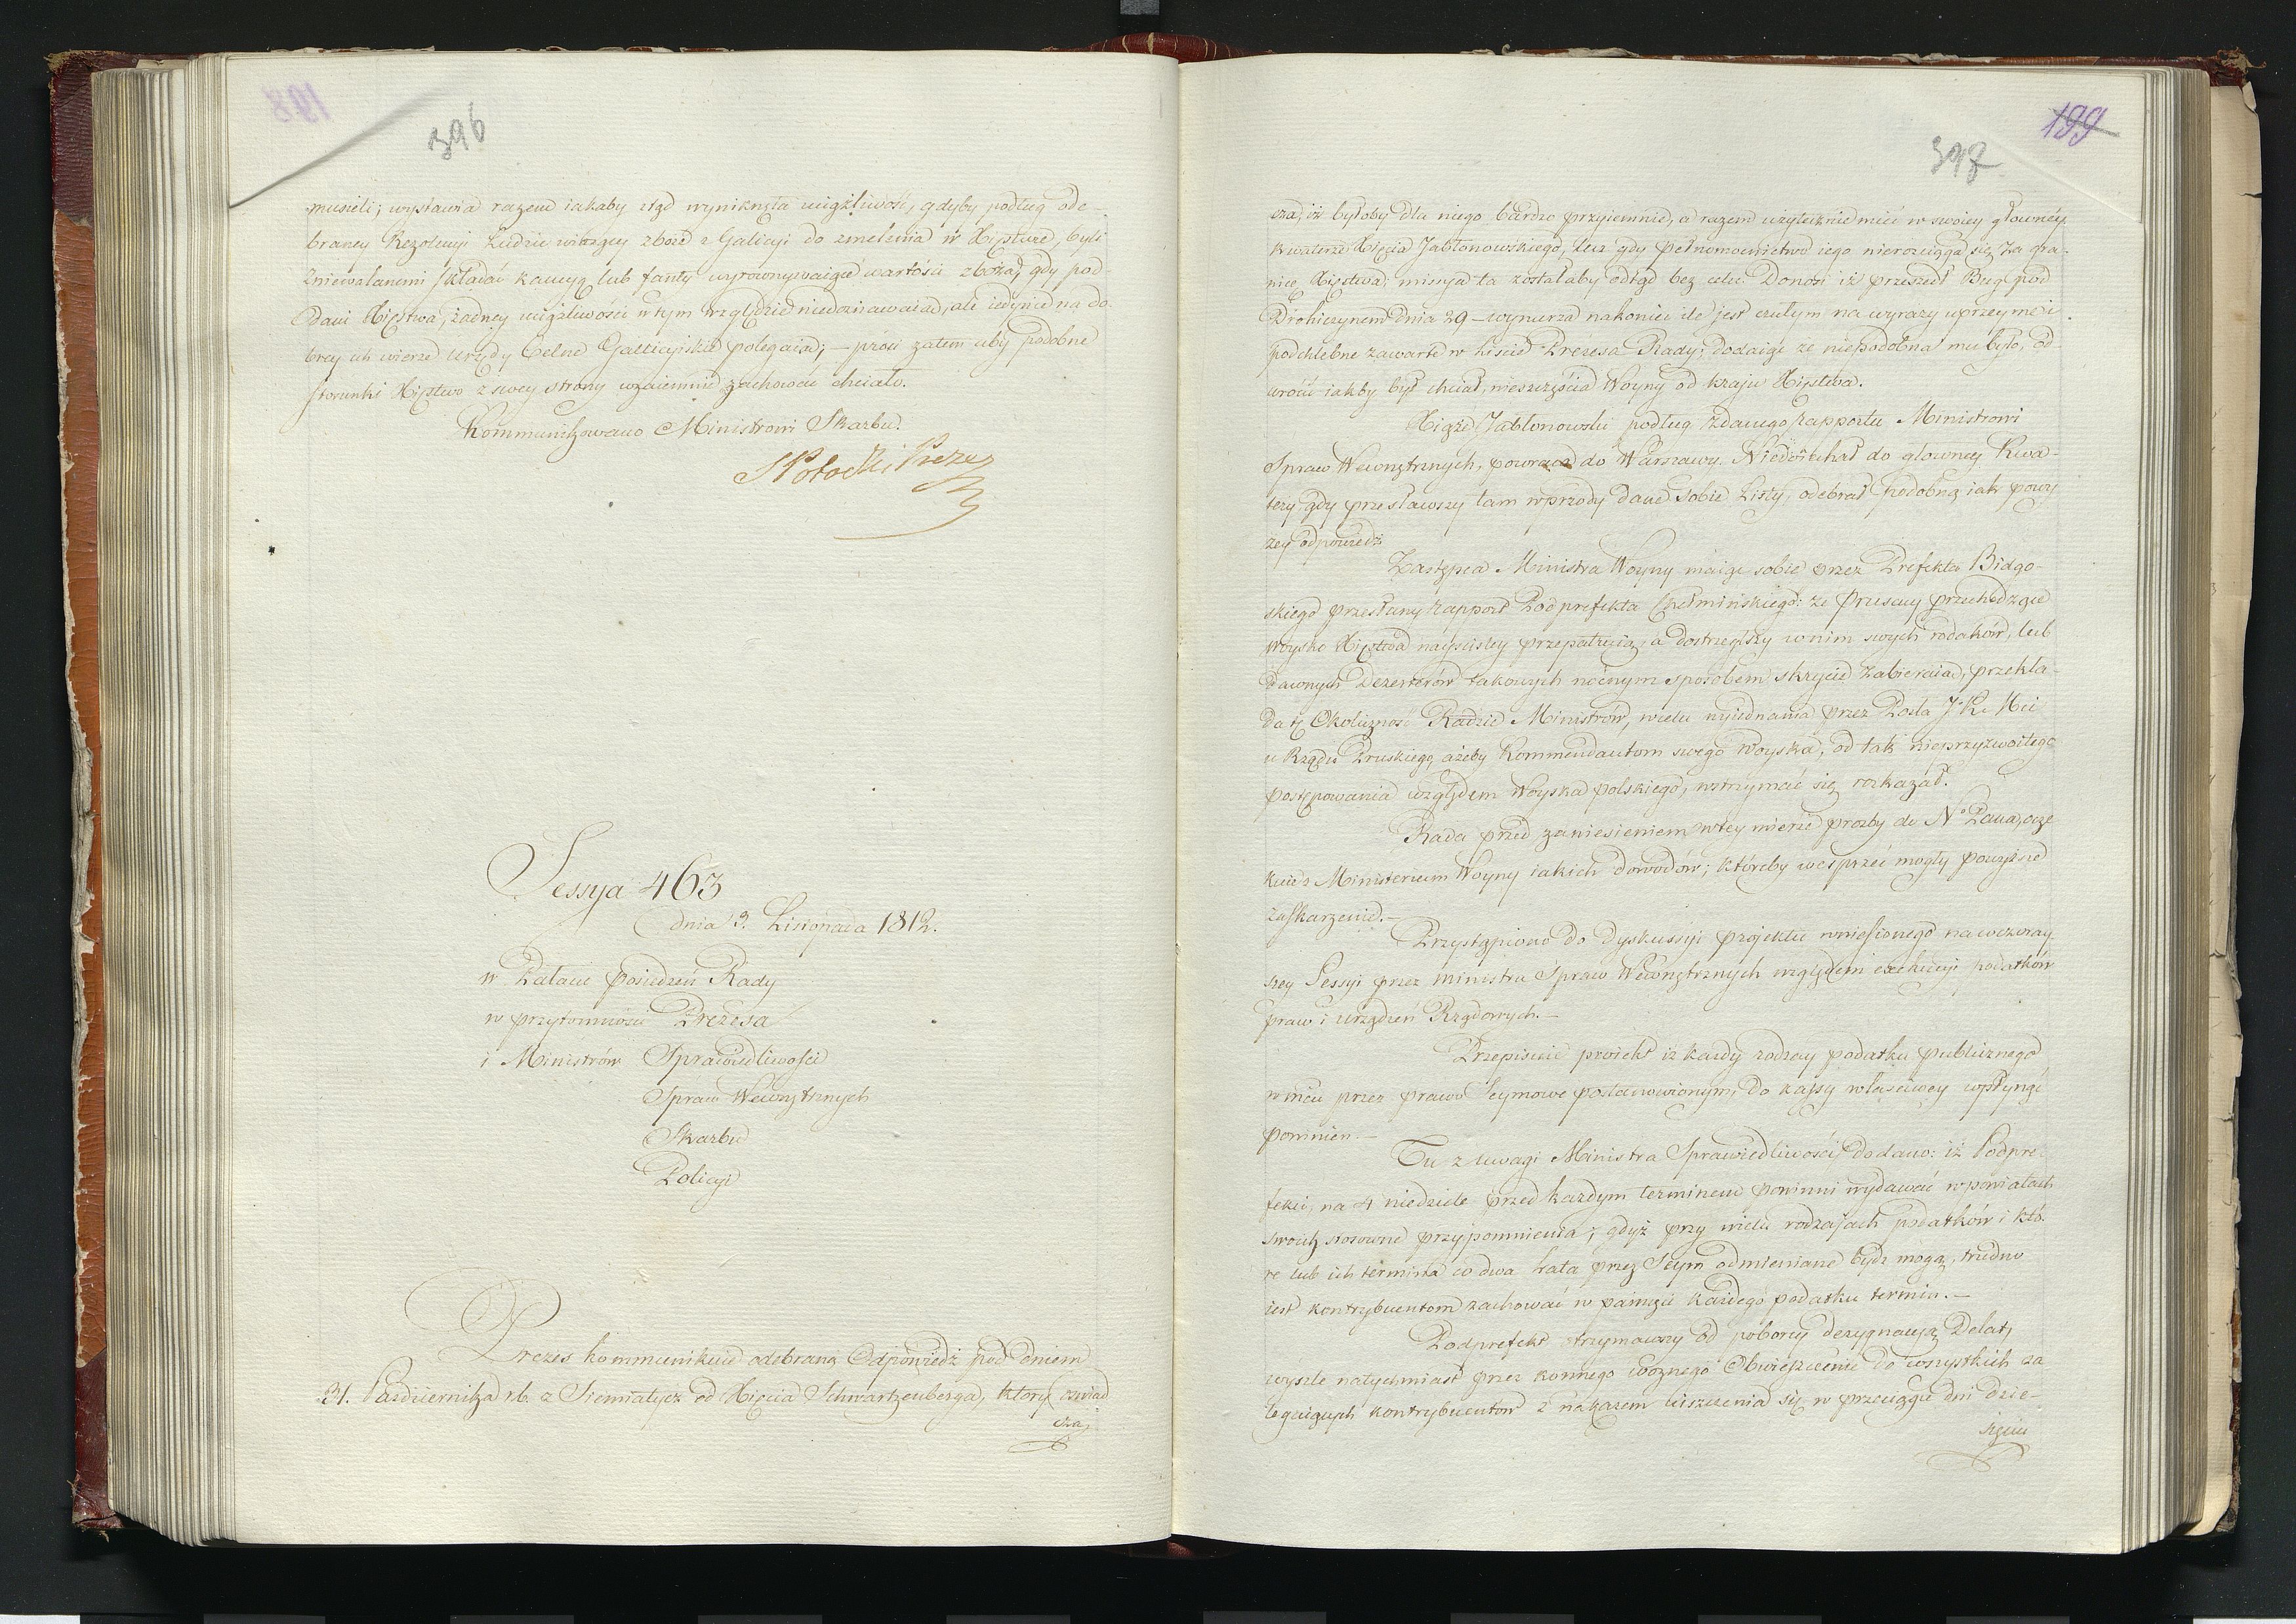 396
musieli; wystawia razem iakaby ztąd wyniknęła uciążliwość, gdyby podług ode-
braney Rezolucyi Ludzie wiozący zboże z Galicyi do zmełenia w Xięstwie, byli
zniewalanemi składać kaucyą lub fanty wyrownywaiące wartości zboża, gdy pod-
dani Xięstwa, żadney uciążliwości w tym względzie niedoznawaią, ale iedynie na do-
brey ich wierze Urzędy Celne Galicyiskie polegaią; – prosi zatem aby podobne
stosunki Xięstwo z swey strony wzaiemnie zachować chciało.
Kommunikowano Ministrowi Skarbu.
S Potocki Prezes
Sessya 463
dnia 3. Listopada 1812.
w Pałacu posiedzeń Rady
w przytomności Prezesa
i Ministrów Sprawiedliwości
Spraw Wewnętrznych
Skarbu
Policyi
Prezes kommunikuie odebraną Odpowiedź pod dniem
31. Października r.b. z Siemiatycz od Xięcia Schwartzenberga, ktory oswiad
cza,
199
397
cza, iż byłoby dla niego bardzo przyiemnie, a razem użytecznie mieć w swoiey głowney
kwaterze Xięcia Jabłonowskiego, lecz gdy pełnomocnictwo iego nierozciąga się za gra-
nicę Xięstwa, missya ta zostałaby odtąd bez celu. Donosi iż przeszedł Bug pod
Drohiczynem dnia 29 – wynurza nakoniec ile jest czułym na wyrazy uprzeyme i
podchlebne zawarte w liscie Prezesa Rady; dodaiąc że niepodobna mu było, od-
wrócić iakby był chciał, nieszczęścia Woyny od kraju Xięstwa.
Xiąże Jabłonowski podług zdanego rapportu Ministrowi
Spraw Wewnętrznych, powraca do Warszawy. Niedoiechał do głowney Kwa-
tery gdy przesławszy tam wprzody dane sobie Listy, odebrał podobną iak powy
żey odpowiedź
Zastępca Ministra Woyny maiąc sobie przez Prefekta Bidgo-
skiego przesłany rapport Podprefekta Chełmińskiego: że Prusacy przechodzące
woysko Xięstwa nayściśley przepatruią, a dostrzegłszy w nim swych rodaków, lub
dawnych Dezerterów takowych nocnym sposobem skrycie zabieraią, przekła-
da tę Okoliczność Radzie Ministrów, w celu wyiednania przez Posła J. K. Mci
u Rządu Pruskiego, ażeby Kommendantom swego Woyska, od tak nieprzyzwoitego
postępowania względem Woyska polskiego, wstrzymać się rozkazał.
Rada przed zaniesieniem w tey mierze prozby do N° Pana, ocze
kuie z Ministerium Woyny iakich dowodów; któreby wesprzeć mogły powyższe
zaskarzenie. –
Przystąpiono do dyskussyi projektu wniesionego na wczoray
szey Sessyi przez ministra Spraw Wewnętrznych względem exekucyi podatków
praw i urządzeń Rządowych. –
Przepisuie proiekt iż każdy rodzay podatku publicznego
w m̄cu przez prawo Seymowe postanowionym, do kassy właściwey wpłynąć
powinien. –
Tu z uwagi Ministra Sprawiedliwości dodano: iż Podpre-
fekci, na 4 niedziele przed każdym terminem powinni wydawać w powiatach
swoich stosowne przypomnienia; gdyż przy wielu rodzajach podatków i któ-
re lub ich termina co dwa lata przez Seym odmieniane bydź mogą, trudno
iest kontrybuentom zachować w pamięci każdego podatku termin. –
Podprefekt otrzymawszy od poborcy dezygnacyą Delat,
wyszle natychmiast przez konnego woznego Obwieszczenie do wszystkich za
legaiących kontrybuentów z nakazem uiszczenia się w przeciągu dni dzie-
sięciu